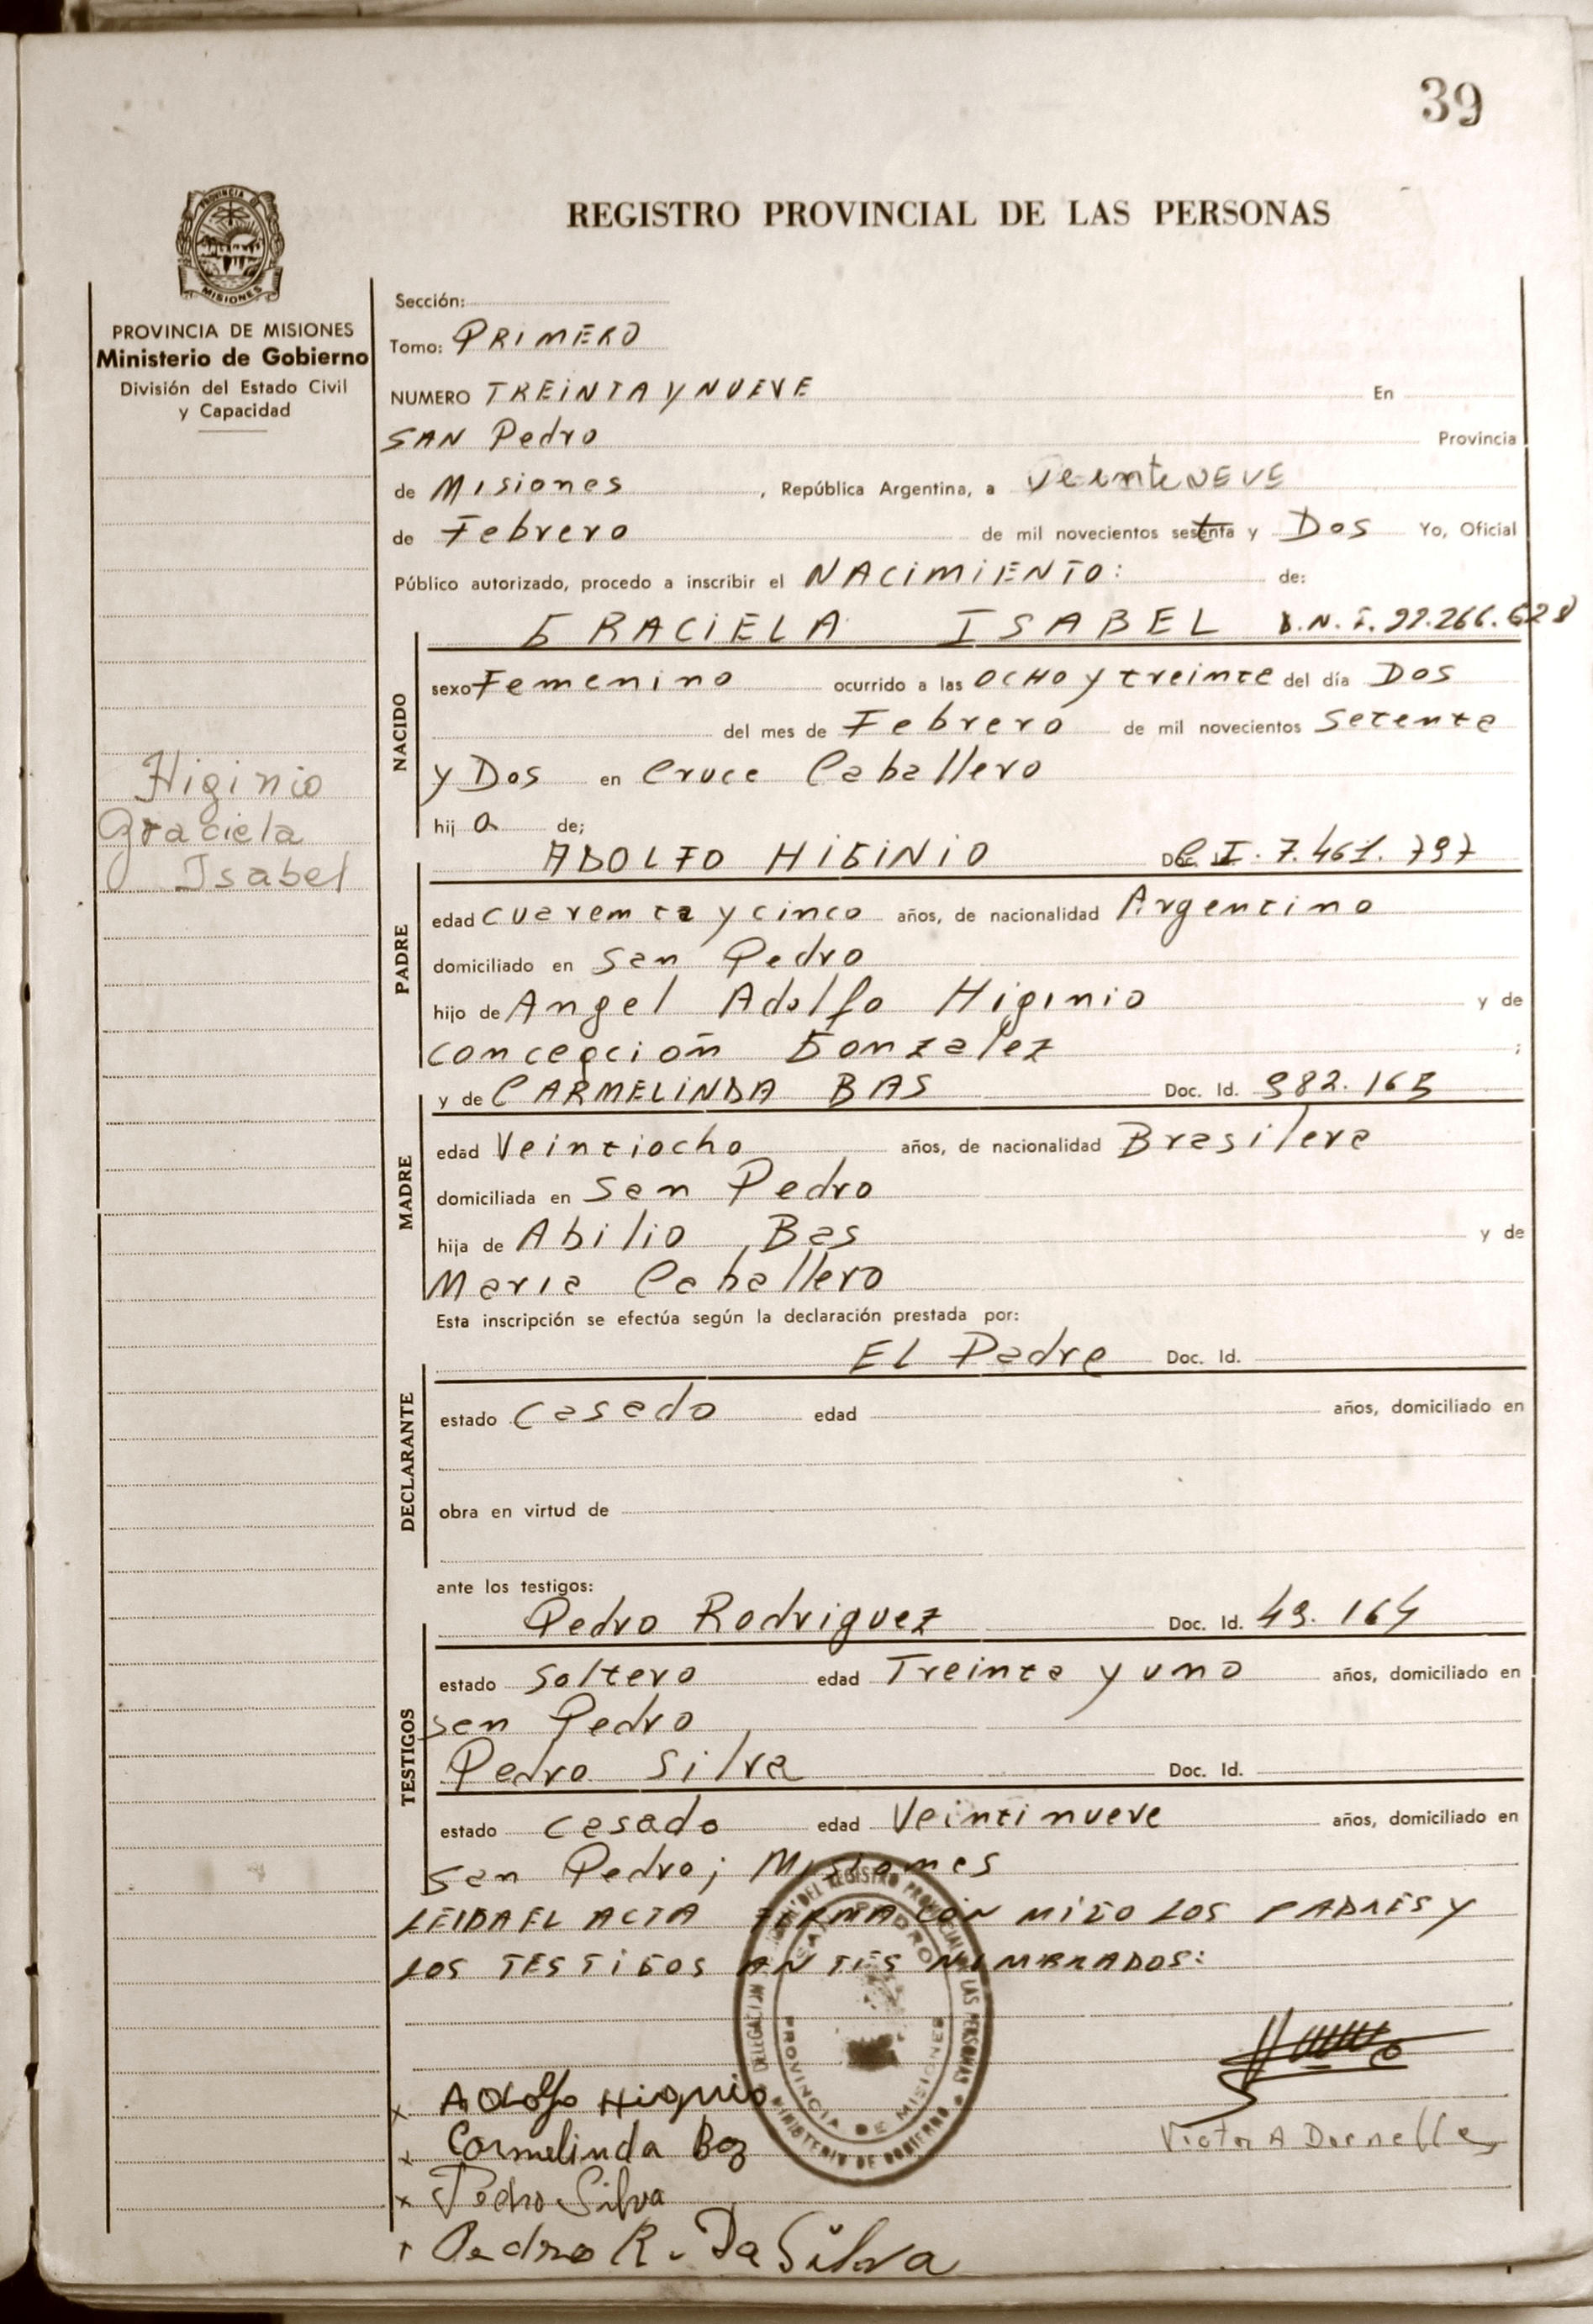 39
REGISTRO PROVINCIAL DE LAS PERSONAS
PROVINCIA DE
MISIONES
PROVINCIA DE MISIONES
Ministerio de Gobierno
División del Estado Civil
y Capacidad
Higinio
Graciela
Isabel
Sección:
Tomo: PRIMERO
NUMERO TREINTA Y NUEVE En
SAN Pedro Provincia
de Misiones , República Argentina, a VeinteNEVE
de Febrero de mil novecientos setenta y Dos Yo, Oficial
Público autorizado, procedo a inscribir el NACIMIENTO: de:
GRACIELA ISABEL D.N.I. 22.266.628
NACIDO
sexo Femenino ocurrido a las OCHO y treinte del día Dos
del mes de Febrero de mil novecientos Setenta
y Dos en Cruce Caballero
hij a de;
ADOLFO HIGINIO C.I. 7.461.797
PADRE
edad cuarenta y cinco años, de nacionalidad Argentino
domiciliado en San Pedro
hijo de Angel Adolfo Higinio y de
Concepción Gonzalez ;
y de CARMELINDA BAS Doc. Id. 982.165
MADRE
edad Veintiocho años, de nacionalidad Brasilera
domiciliada en San Pedro
hija de Abilio Bas y de
Maria Caballero
Esta inscripción se efectúa según la declaración prestada por:
El Padre Doc. Id.
DECLARANTE
estado Casado edad años, domiciliado en
obra en virtud de
ante los testigos:
Pedro Rodriguez Doc. Id. 49.164
TESTIGOS
estado Soltero edad Treinta y uno años, domiciliado en
San Pedro
Pedro Silva Doc. Id.
estado casado edad Veintinueve años, domiciliado en
San Pedro; Misiones
LEIDA EL ACTA FIRMA CON MIGO LOS PADRES Y
LOS TESTIGOS ANTES NOMBRADOS:
DELEGACION DEL REGISTRO PROVINCIAL DE LAS PERSONAS
SAN PEDRO
PROVINCIA DE MISIONES
MINISTERIO DE GOBIERNO
x Adolfo Higinio
x Carmelinda Boz
x Pedro Silva
x Pedro R. Da Silva
Victor A Dornelles